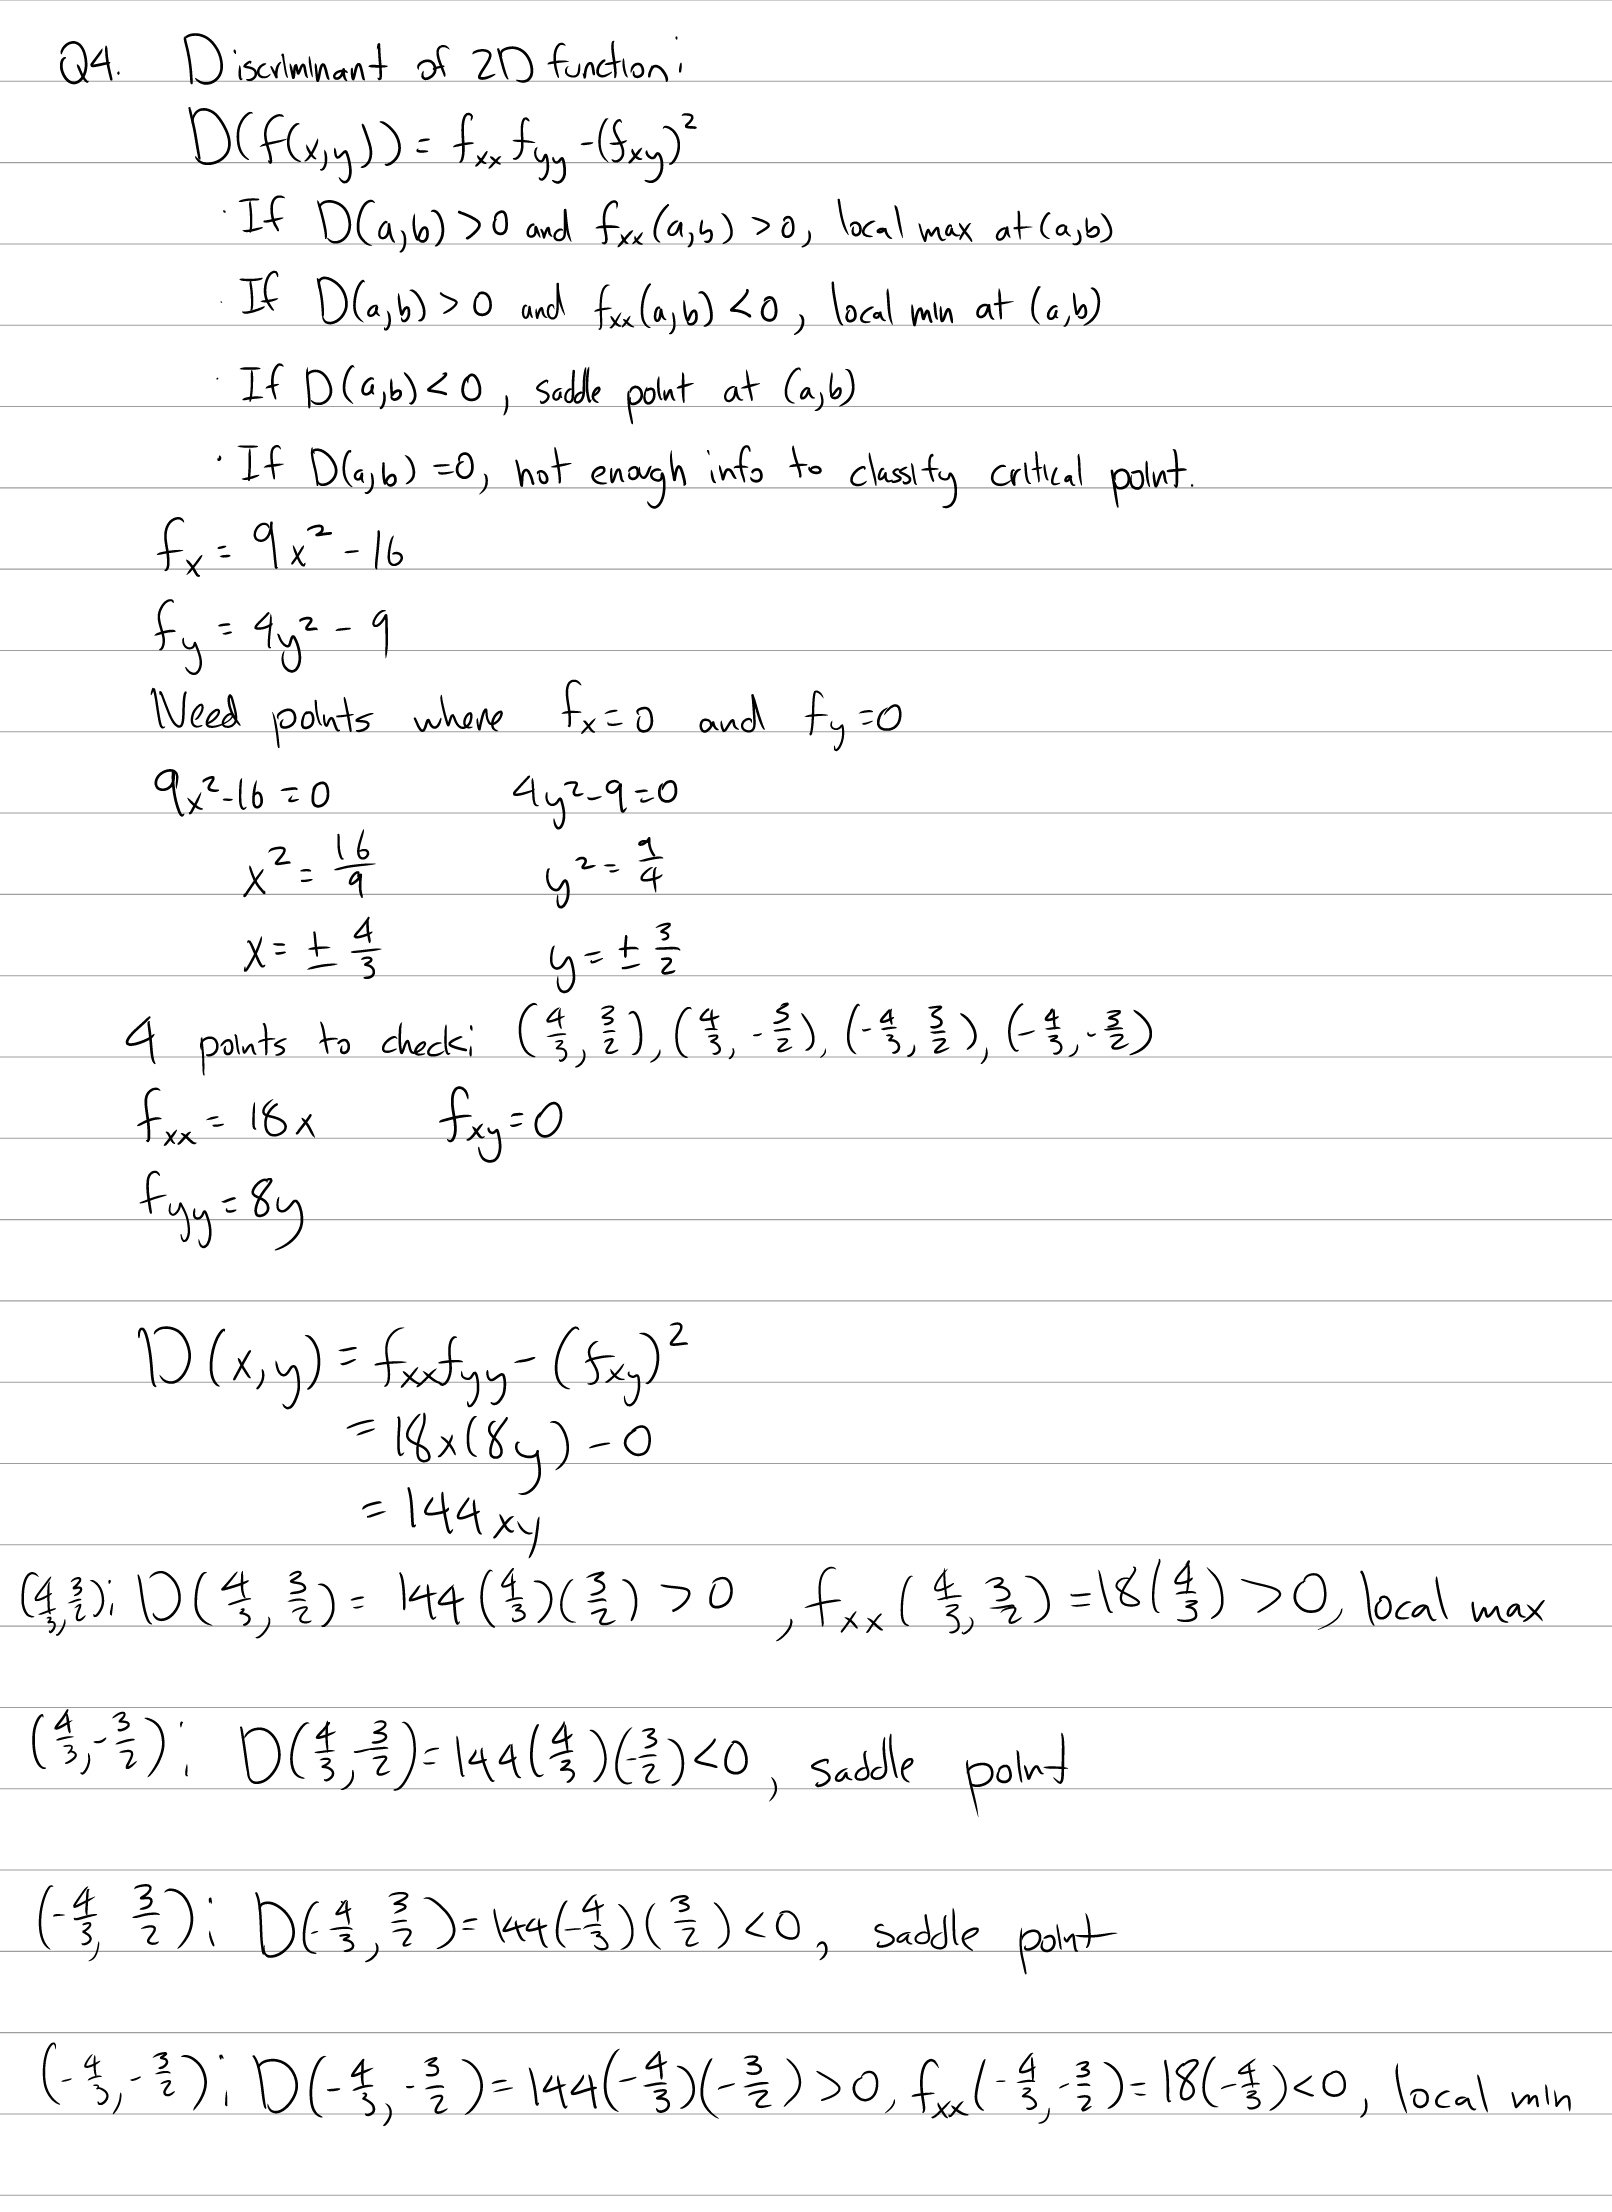 Q4. Discriminant of 2D function:
D(f(x,y)) = fxx fyy - (fxy)²
· If D(a,b) > 0 and fxx(a,b) > 0, local max at (a,b)
· If D(a,b) > 0 and fxx(a,b) < 0, local min at (a,b)
· If D(a,b) < 0, saddle point at (a,b)
· If D(a,b) = 0, not enough info to classify critical point.
fx = 9x² - 16
fy = 4y² - 9
Need points where fx = 0 and fy = 0
9x² - 16 = 0 4y² - 9 = 0
x² = 16/9 y² = 9/4
x = ± 4/3 y = ± 3/2
4 points to check: (4/3, 3/2), (4/3, -3/2), (-4/3, 3/2), (-4/3, -3/2)
fxx = 18x fxy = 0
fyy = 8y
D(x,y) = fxxfyy - (fxy)²
= 18x(8y) - 0
= 144xy
(4/3, 3/2): D(4/3, 3/2) = 144(4/3)(3/2) > 0, fxx(4/3, 3/2) = 18(4/3) > 0, local max
(4/3, -3/2): D(4/3, -3/2) = 144(4/3)(-3/2) < 0, saddle point
(-4/3, 3/2): D(-4/3, 3/2) = 144(-4/3)(3/2) < 0, saddle point
(-4/3, -3/2): D(-4/3, -3/2) = 144(-4/3)(-3/2) > 0, fxx(-4/3, -3/2) = 18(-4/3) < 0, local min